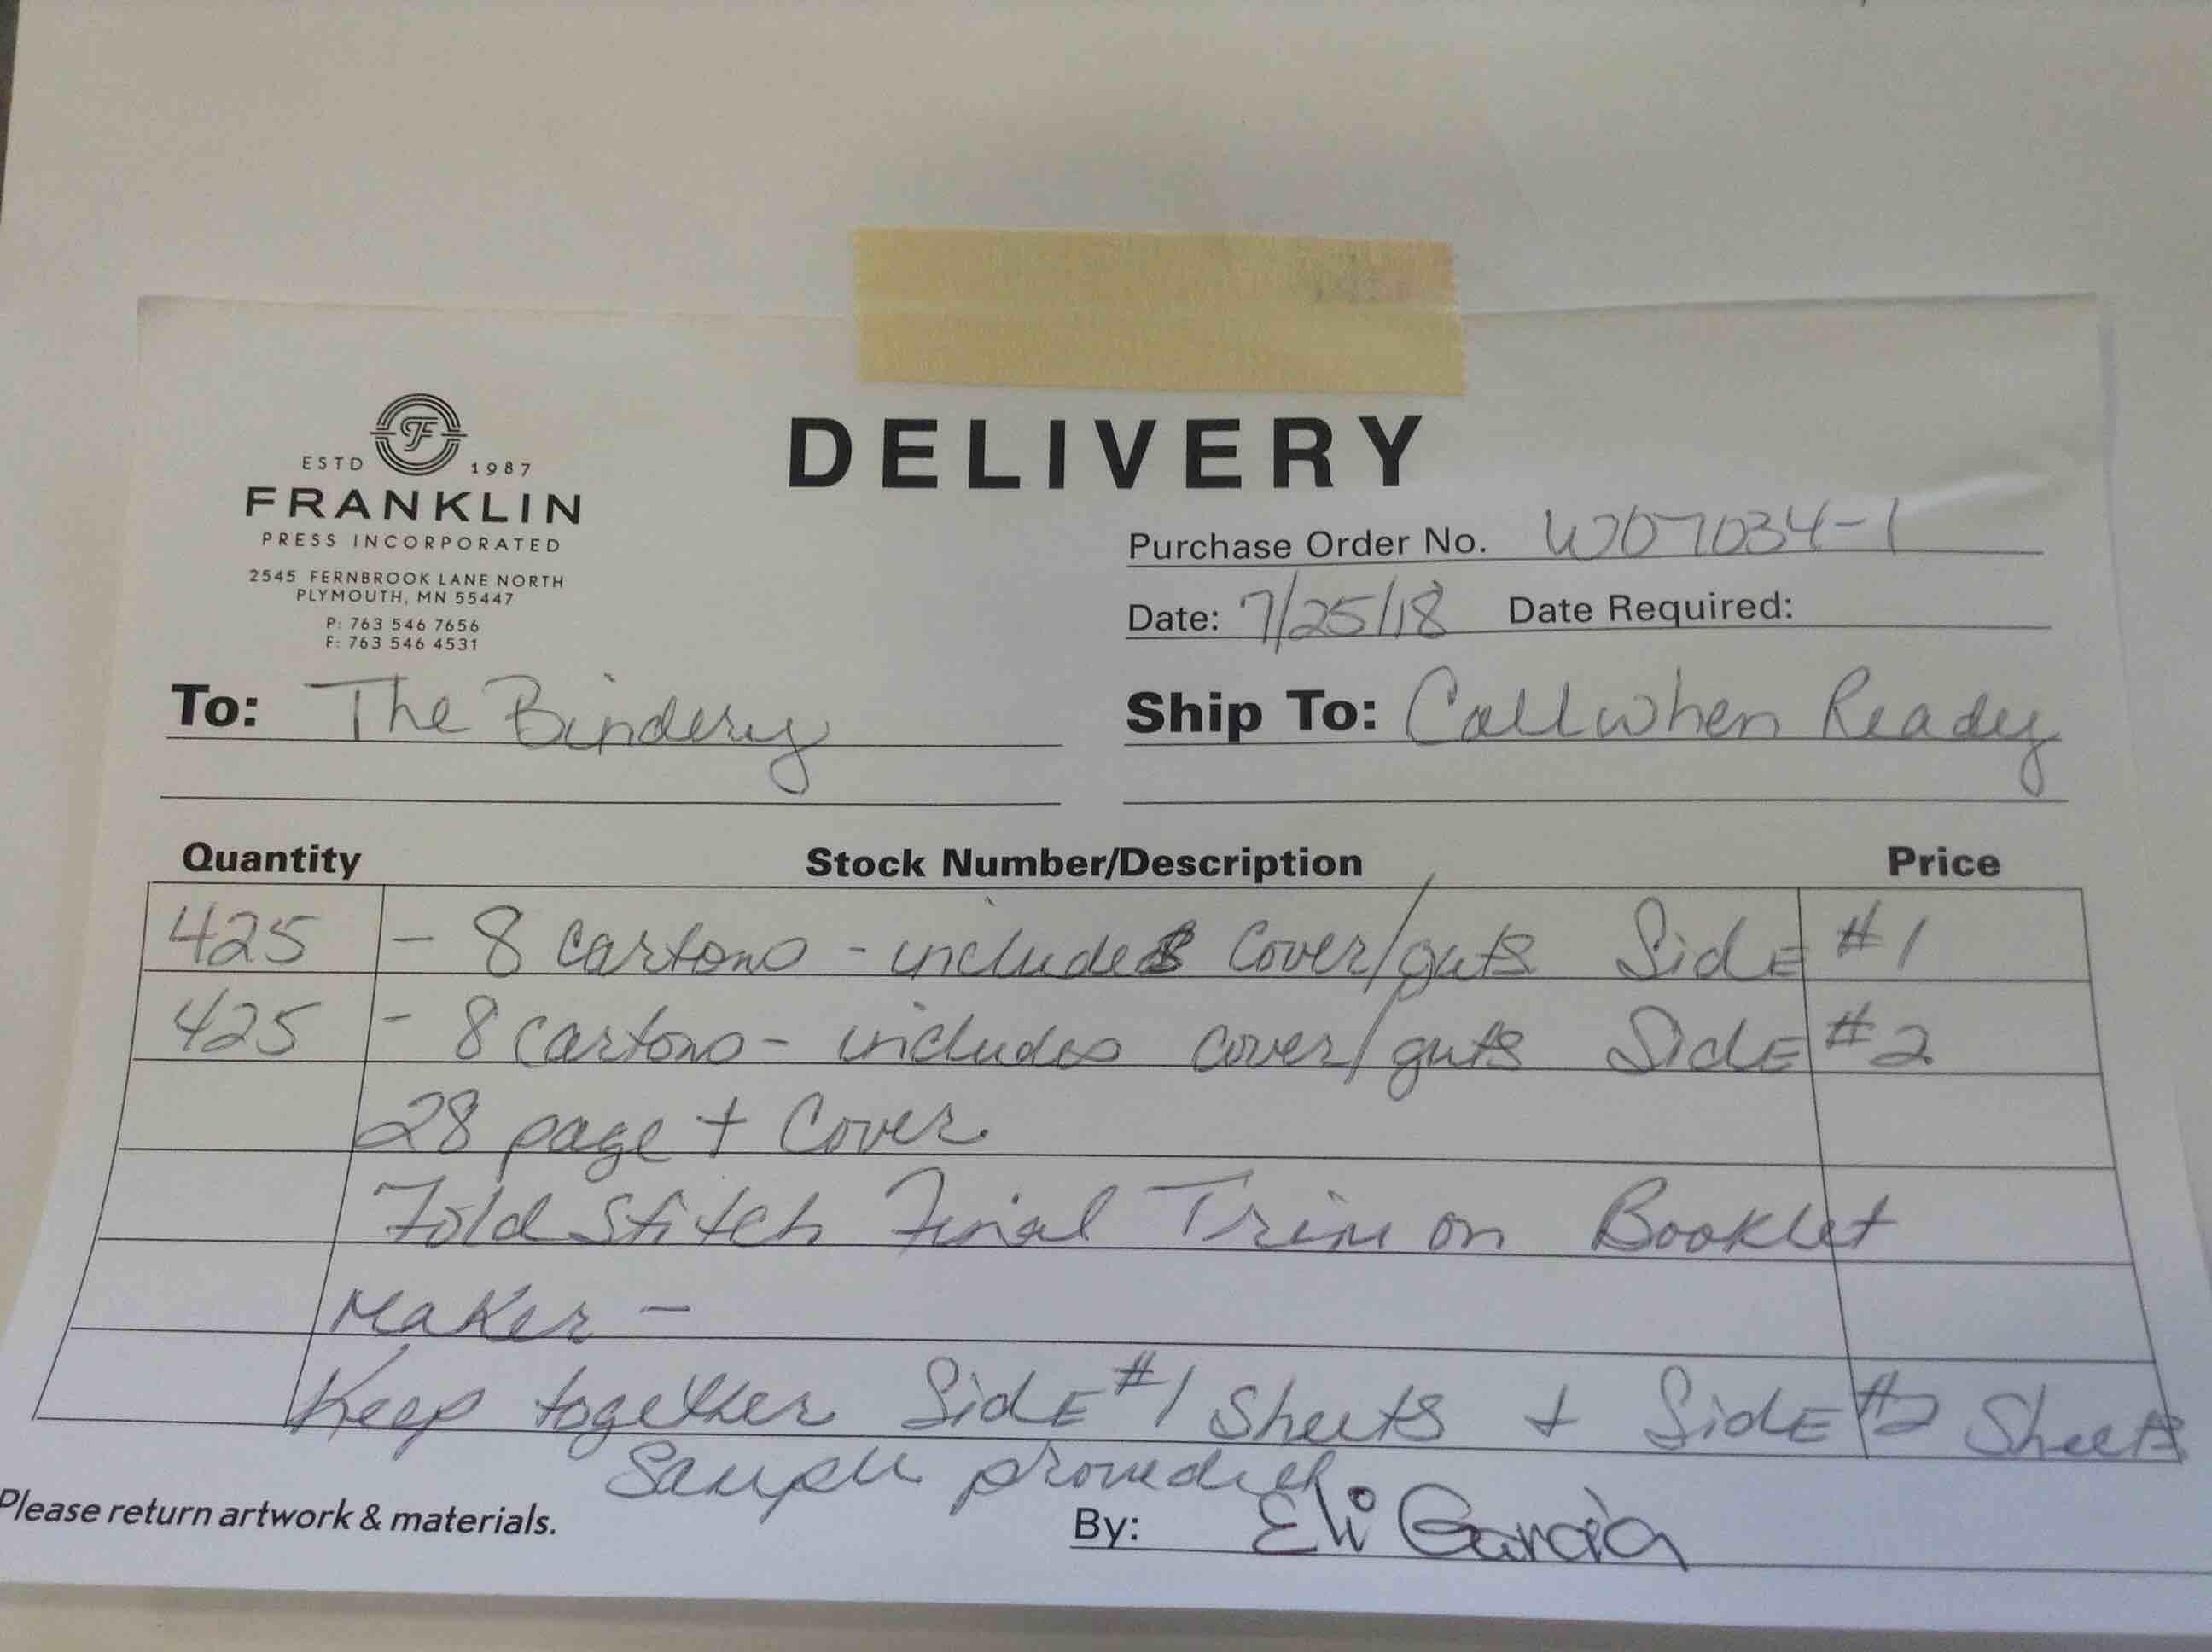 ESTD 1987
FRANKLIN
PRESS INCORPORATED
2545 FERNBROOK LANE NORTH
PLYMOUTH, MN 55447
P: 763 546 7656
F: 763 546 4531
DELIVERY
Purchase Order No. W07034-1
Date: 7/25/18 Date Required:
To: The Bindery
Ship To: Call when Ready
Quantity Stock Number/Description Price
425 - 8 cartons - includes cover/guts SidE #1
425 - 8 cartons - includes cover/guts SidE #2
28 page + Cover
Fold Stitch Final Trim on Booklet
Maker -
Keep together SidE #1 Sheets + SidE #2 Sheets
Sample provided
Please return artwork & materials.
By: Eli Garcia